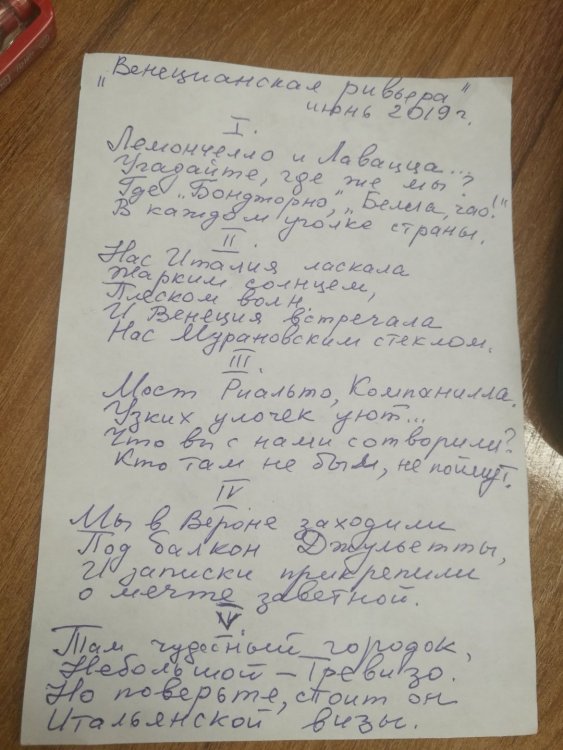 „Венецианская ривьера"
июнь 2019 г.
I.
Лемончелло и Лавацца...
Угадайте, где же мы?
Где „Бонджорно," „Белла, чао!"
В каждом уголке страны.
II.
Нас Италия ласкала
Жарким солнцем,
Плеском волн.
И Венеция встречала
Нас Мурановским стеклом.
III.
Мост Риальто, Компанилла.
Узких улочек уют...
Что вы с нами сотворили?
Кто там не был, не поймут.
IV
Мы в Вероне заходили
Под балкон Джульетты,
И записки прикрепили
о мечте заветной.
V.
Там чудесный городок,
Небольшой – Тревизо.
Но поверьте, стоит он
Итальянской визы.